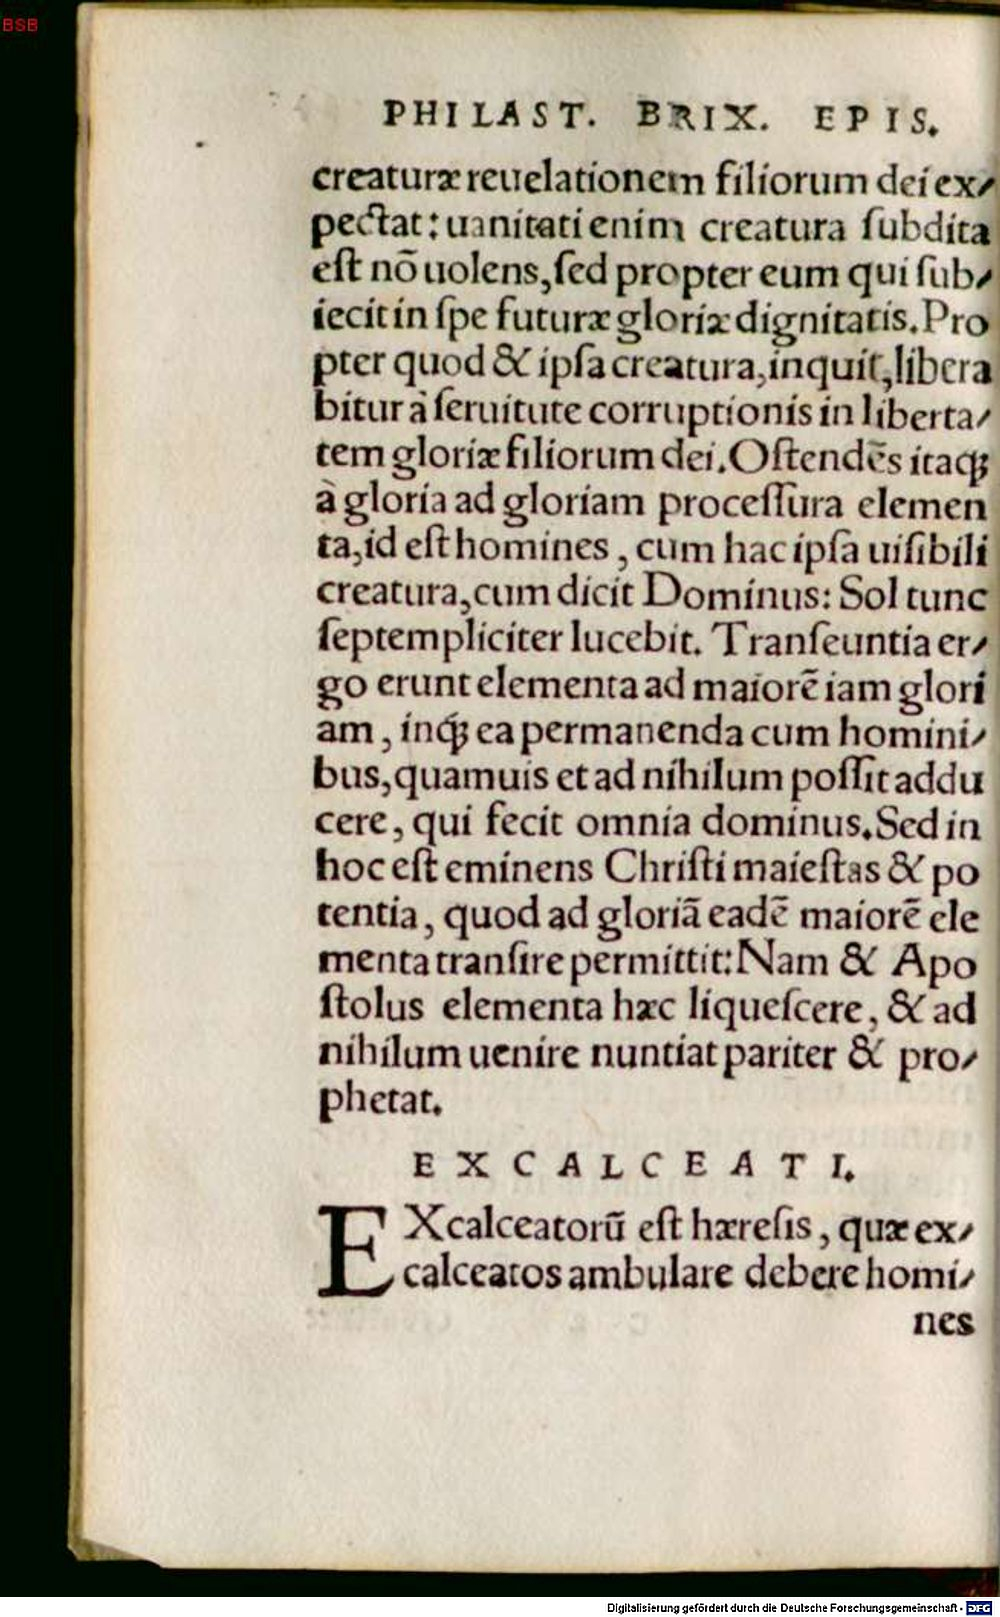 BSB
PHILAST. BRIX. EPIS.
creaturæ reuelationem filiorum dei ex/
pectat: uanitati enim creatura ſubdita
eſt nō uolens, ſed propter eum qui ſub/
iecit in ſpe futuræ gloriæ dignitatis. Pro
pter quod & ipſa creatura, inquit, libera
bitur à ſeruitute corruptionis in liberta/
tem gloriæ filiorum dei. Oſtendēs itaq;
à gloria ad gloriam proceſſura elemen
ta, id eſt homines, cum hac ipſa uiſibili
creatura, cum dicit Dominus: Sol tunc
ſeptempliciter lucebit. Tranſeuntia er/
go erunt elementa ad maiorē iam glori
am, inq́; ea permanenda cum homini/
bus, quamuis et ad nihilum poſſit addu
cere, qui fecit omnia dominus. Sed in
hoc eſt eminens Chriſti maieſtas & po
tentia, quod ad gloriā eadē maiorē ele
menta tranſire permittit: Nam & Apo
ſtolus elementa hæc liqueſcere, & ad
nihilum uenire nuntiat pariter & pro/
phetat.
EXCALCEATI.
EXcalceatorū eſt hæreſis, quæ ex/
calceatos ambulare debere homi/
nes
Digitalisierung gefördert durch die Deutsche Forschungsgemeinschaft - DFG